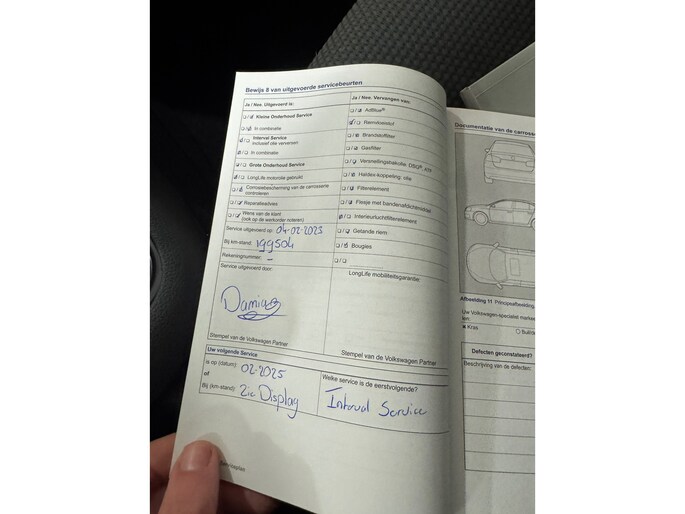 Bewijs 8 van uitgevoerde servicebeurten
Ja / Nee. Uitgevoerd is:
Kleine Onderhoud Service
In combinatie
Interval Service
inclusief olie verversen
In combinatie
Grote Onderhoud Service
LongLife motorolie gebruikt
Corrosiebescherming van de carrosserie
controleren
Reparatieadvies
Wens van de klant
(ook op de werkorder noteren)
Service uitgevoerd op: 04-02-2025
Bij km-stand: 199504
Rekeningnummer: -
Service uitgevoerd door:
Damian
Stempel van de Volkswagen Partner
Ja / Nee. Vervangen van:
AdBlue®
Remvloeistof
Brandstoffilter
Gasfilter
Versnellingsbakolie: DSG®, ATF
Haldex-koppeling: olie
Filterelement
Flesje met bandenafdichtmiddel
Interieurluchtfilterelement
Getande riem
Bougies
LongLife mobiliteitsgarantie:
Stempel van de Volkswagen Partner
Uw volgende Service
is op (datum): 02-2025
of
Bij (km-stand): Zie Display
Welke service is de eerstvolgende?
Interval Service
Serviceplan
Documentatie van de carrosse
Afbeelding 11 Principeafbeelding.
Uw Volkswagen-specialist marke
Kras
Defecten geconstateerd?
Beschrijving van de defecten: